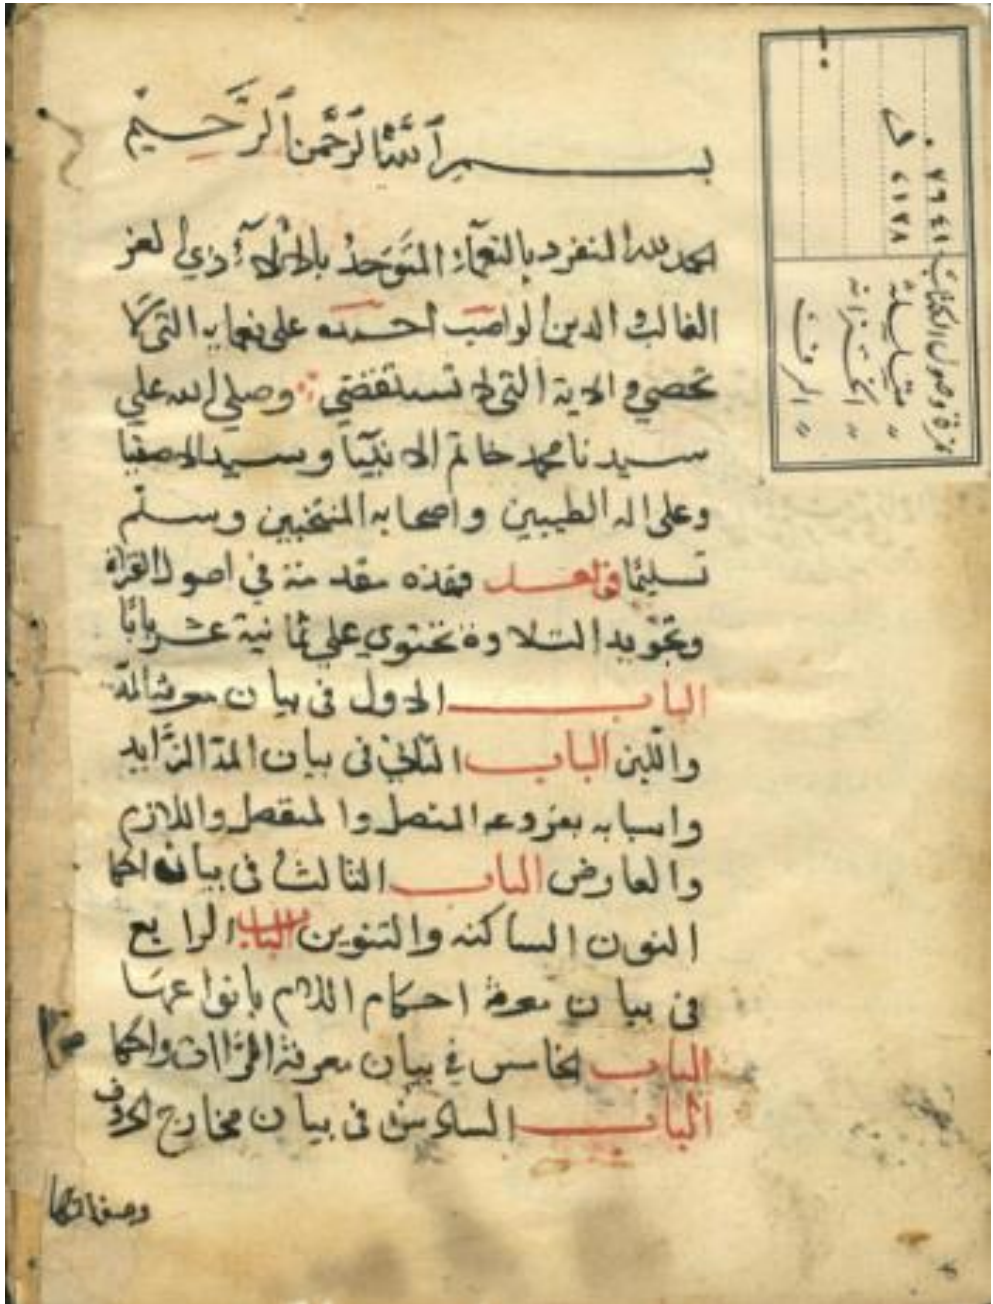 بسم الله الرحمن الرحيم
الحمد لله المنفرد بالنعماء المتوحد بالالآء ذي العز
الغالب والدين الواصب احمده على نعمايه التي لا
تحصي والايه التي لا تستقضي وصلي الله علي
سيدنا محمد خاتم الانبيا وسيد الاصفيا
وعلى اله الطيبين واصحابه المنتخبين وسلم
تسليما وبعد فهذه مقدمة في اصول القراة
وتجويد التلاوة تحتوي علي ثمانية عشر بابا
الباب الاول في بيان معرفة المد
واللين الباب الثاني في بيان المد الزايد
واسبابه بفروعه المتصل والمنفصل واللازم
والعارض الباب الثالث في بيان احكا
النون الساكنه والتنوين الباب الرابع
في بيان معرفة احكام اللام بانواعها
الباب الخامس في بيان معرفة الراات واحكا
الباب السادس في بيان مخارج الحروف
وصفاتها
نمرة وصول الكتاب ٧٩٤١
" متسلسلة ٤١٣٨
" الخزانة
" الرف